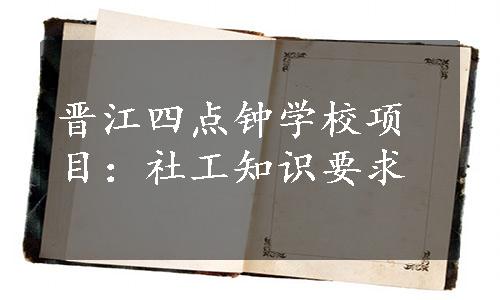 晋江四点钟学校项
目：社工知识要求